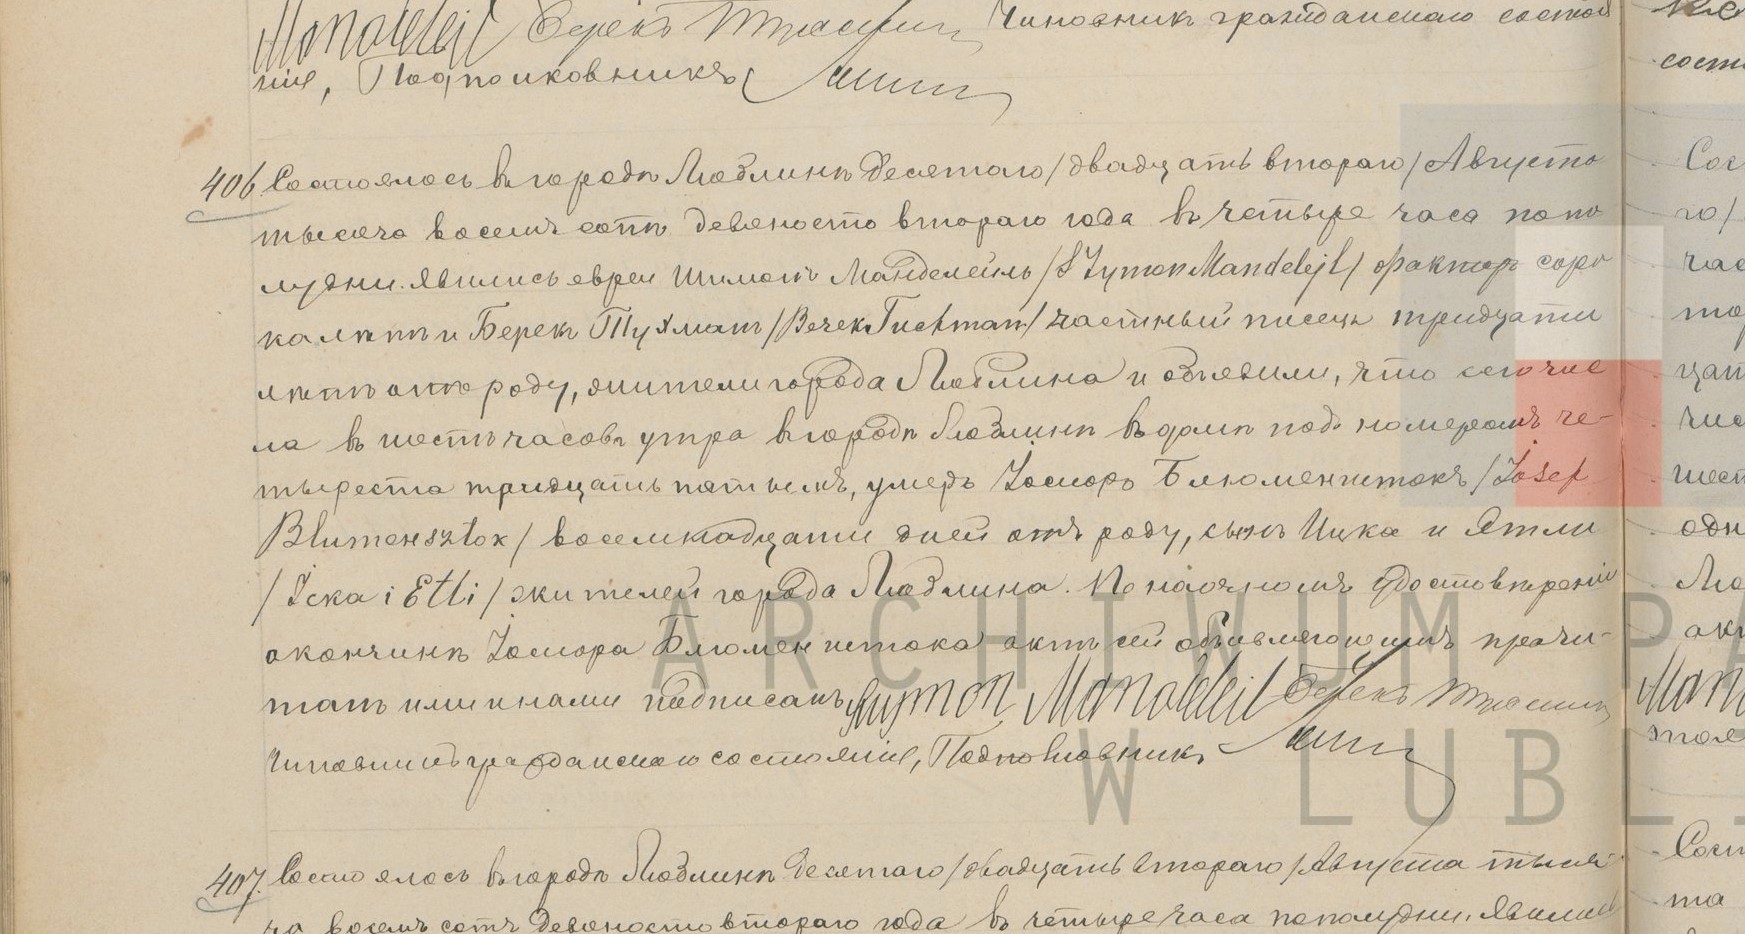 Mandelejl Берекъ Тухман Чиновник гражданскаго состоя
нія, Подполковникъ
406. Состоялось въ городѣ Люблинѣ десятаго /двадцать втораго/ Августа
тысяча восемь сотъ девяносто втораго года въ четыре часа попо
лудни. Явились евреи Шимонъ Манделейль /Szymon Mandelejl/ факторъ соро
ка лѣтъ и Берекъ Тухманъ /Berek Tuchman/ частный писецъ тридцати
лѣтъ отъ роду, жители города Люблина и объявили, что сего чис
ла въ шесть часовъ утра въ городѣ Люблинѣ въ домѣ подъ номеромъ че-
тыреста тридцать пятымъ, умеръ Іосифъ Блюменштокъ /Josef
Blumensztok/ восемнадцати дней отъ роду, сынъ Ицка и Этли
/Icka i Etli/ жителей города Люблина. По наочномъ удостовѣреніи
о кончинѣ Іосифа Блюменштока актъ сей объявляющимъ прочи-
танъ ими и нами подписанъ Szymon Mandelejl Берекъ Тухман
Чиновникъ гражданскаго состоянія, Подполковникъ
407. Состоялось въ городѣ Люблинѣ десятаго /двадцать втораго/ Августа тыся-
ча восемь сотъ девяносто втораго года въ четыре часа пополудни. Явились
ARCHIWUM PA
W LUBLI